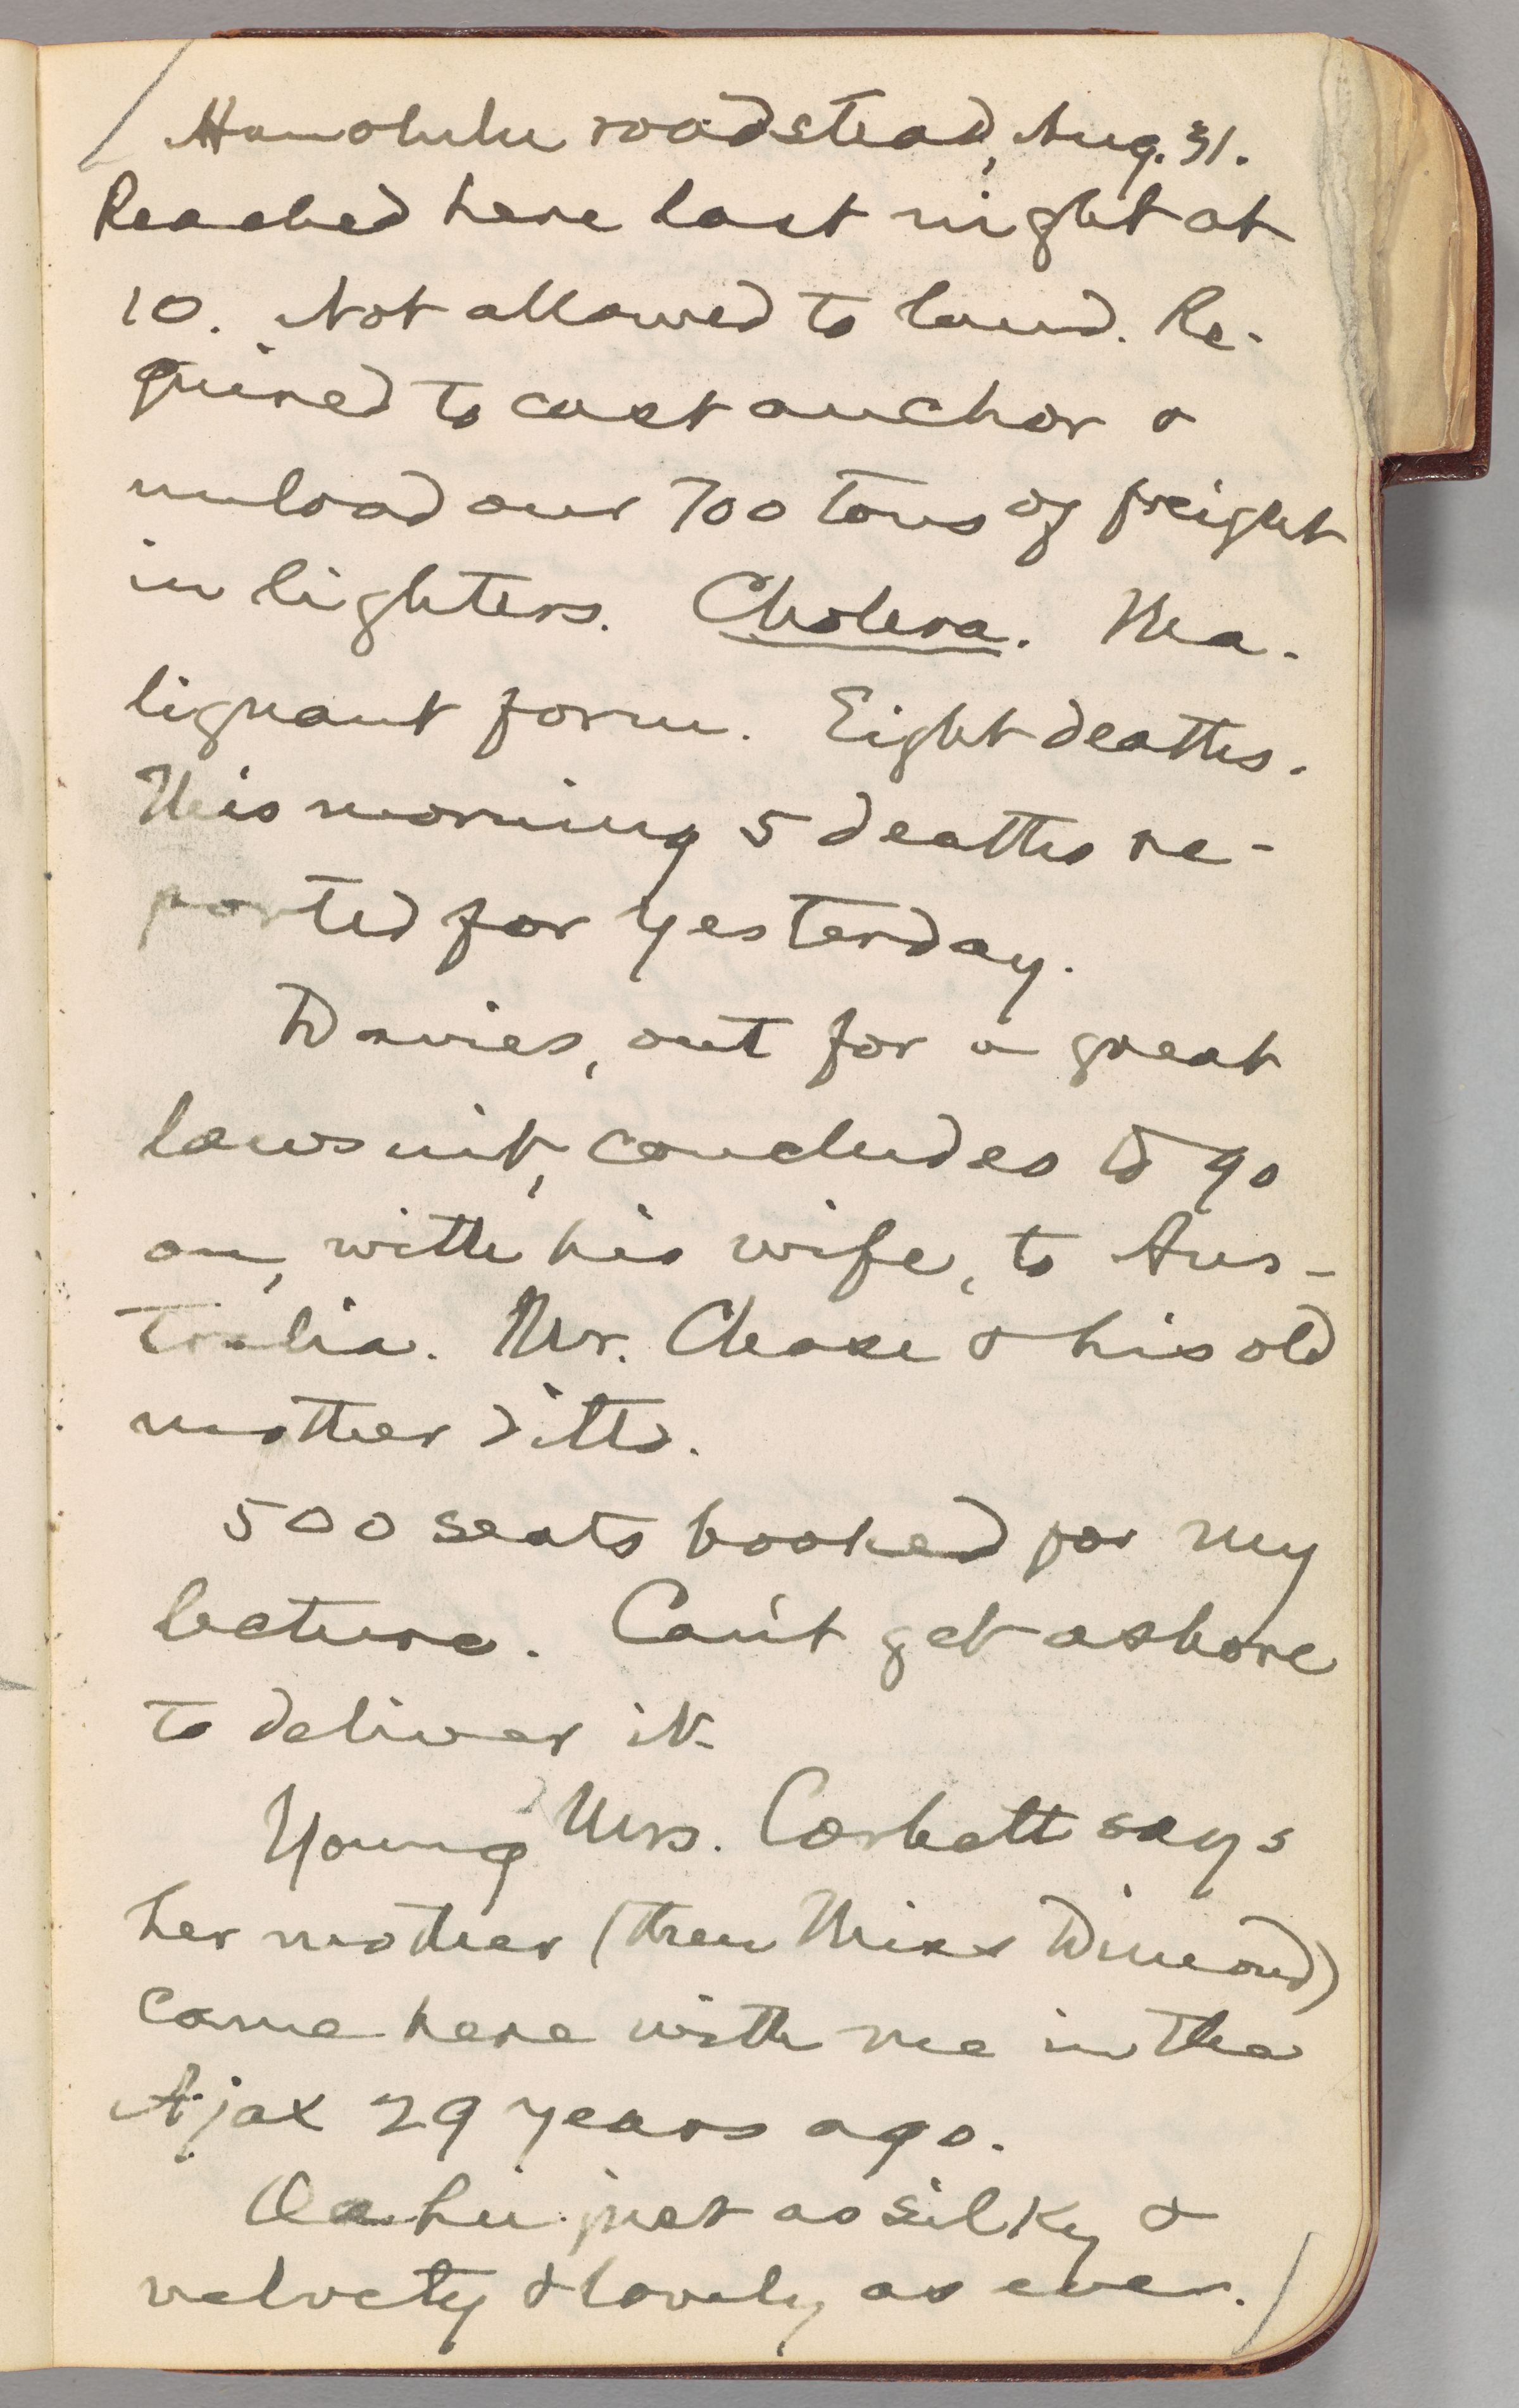 Honolulu roadstead, Aug. 31.
Reached here last night at
10. Not allowed to land. Re-
quired to cast anchor &
unload our 700 tons of freight
in lighters. Cholera. Ma-
lignant form. Eight deaths.
This morning 5 deaths re-
ported for yesterday.
Davies, out for a great
lawsuit, concludes to go
on, with his wife, to Aus-
tralia. Mr. Chase & his old
mother ditto.
500 seats booked for my
lecture. Can't get ashore
to deliver it.
Young Mrs. Corbett says
her mother (then Miss Dimond)
came here with me in the
Ajax 29 years ago.
Oahu just as silky &
velvety & lovely as ever.